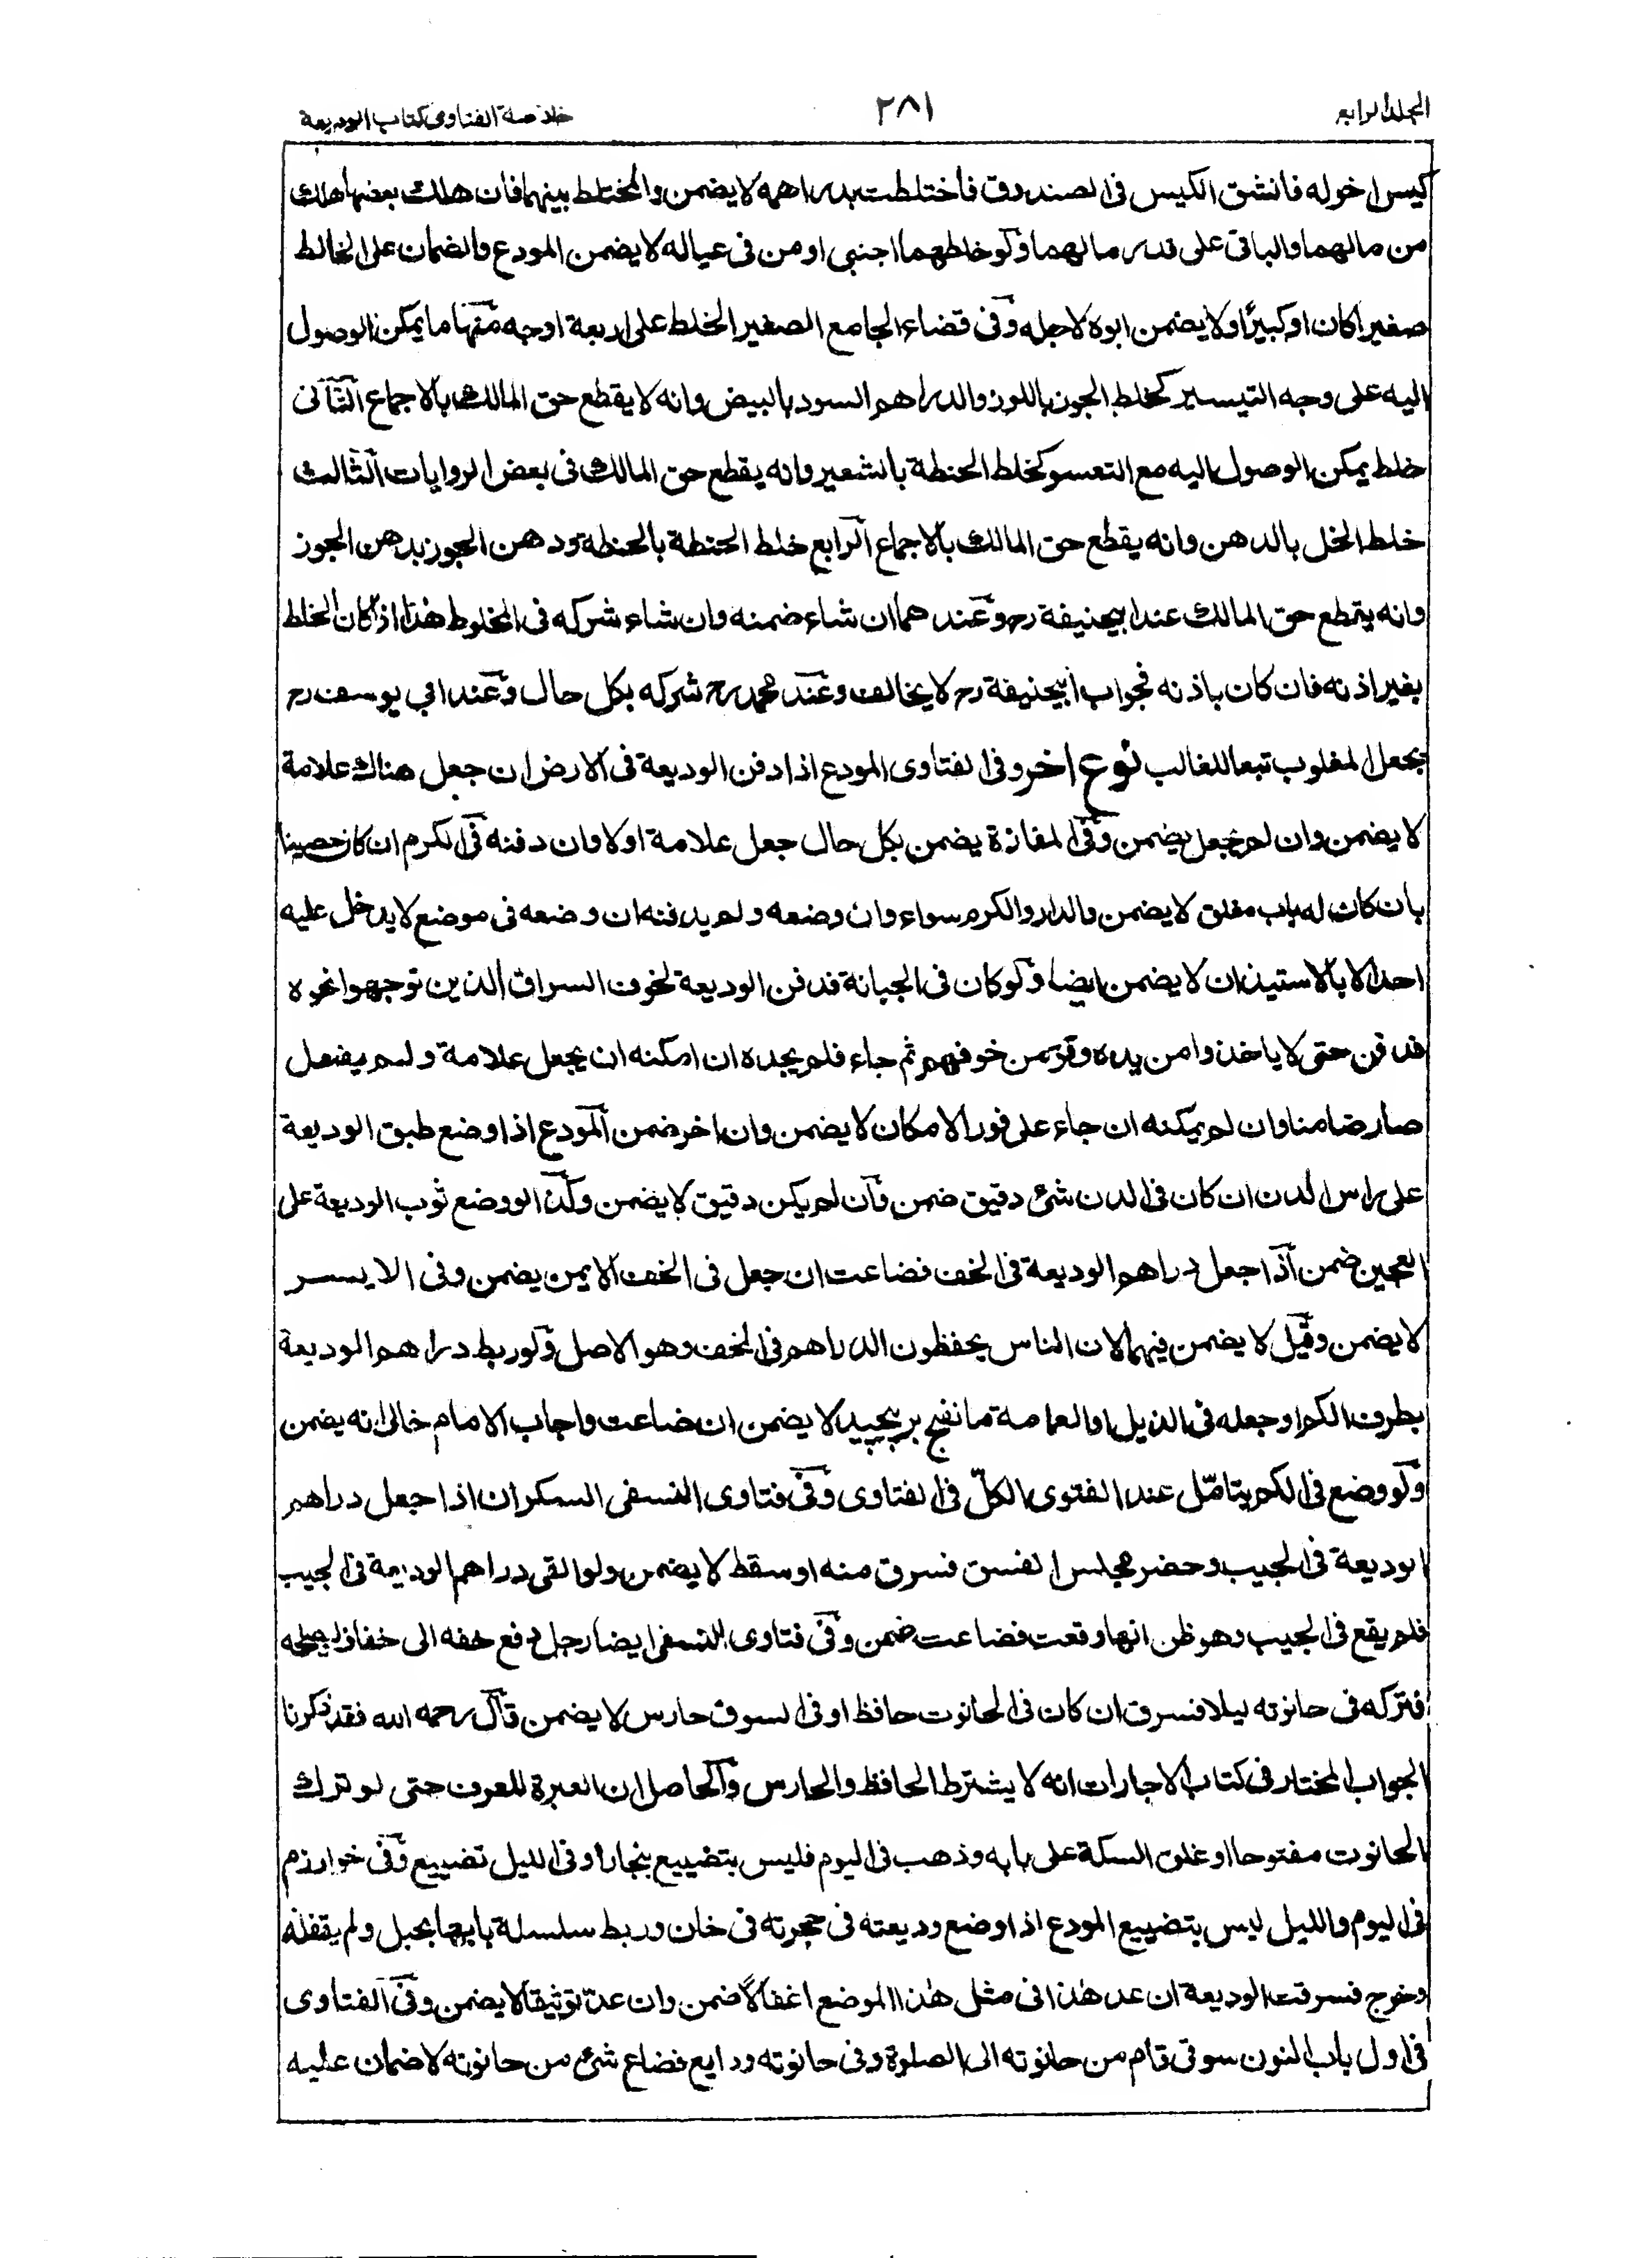 المجلد الرابع
٢٨١
خلاصة الفتاوى كتاب الوديعة
كيس اخوله فانشق الكيس فى الصندوق فاختلطت بدراهمه لا يضمن والمختلط بينهما فان هلك بعضها هلك
من مالهما والباقى على قدر مالهما ولو خلطهما اجنبى او من فى عياله لا يضمن المودع والضمان على الخالط
صغيرا كان او كبيرًا ولا يضمن ابوه لاجله وفى قضاء الجامع الصغير الخلط على اربعة اوجه منها ما يمكن الوصول
اليه على وجه التيسير كخلط الجوز باللوز والدراهم السود بالبيض وانه لا يقطع حق المالك بالاجماع الثانى
خلط يمكن الوصول اليه مع التعسر كخلط الحنطة بالشعير وانه يقطع حق المالك فى بعض الروايات الثالث
خلط الخل بالدهن وانه يقطع حق المالك بالاجماع الرابع خلط الحنطة بالحنطة ودهن الجوز بدهن الجوز
وانه يقطع حق المالك عند ابيحنيفة رح وعندهما ان شاء ضمنه وان شاء شركه فى المخلوط هذا اذا كان الخلط
بغير اذنه فان كان باذنه فجواب ابيحنيفة رح لا يخالف وعند محمد رح شركه بكل حال وعند ابي يوسف رح
يجعل المغلوب تبعا للغالب نوع اخر وفى الفتاوى المودع اذا دفن الوديعة فى الارض ان جعل هناك علامة
لا يضمن وان لم يجعل يضمن وفى المفازة يضمن بكل حال جعل علامة اولا وان دفنه فى الكرم ان كان حصينا
بان كان له باب مغلق لا يضمن والدار والكرم سواء وان وضعه ولم يدفنه ان وضعه فى موضع لا يدخل عليه
احد الا بالاستيذان لا يضمن ايضا ولو كان فى الجبانة فدفن الوديعة لخوف السراق الذين توجهوا نحوه
فدفن حتى لا ياخذوا من يده وفر من خوفهم ثم جاء فلم يجده ان امكنه ان يجعل علامة ولم يفعل
صار ضامنا وان لم يمكنه ان جاء على فور الامكان لا يضمن وان اخر ضمن المودع اذا وضع طبق الوديعة
على راس الدن ان كان فى الدن شئ دقيق ضمن وان لم يكن دقيق لا يضمن وكذا لو وضع ثوب الوديعة على
العجين ضمن اذا جعل دراهم الوديعة فى الخف فضاعت ان جعل فى الخف الايمن يضمن وفى الايسر
لا يضمن وقيل لا يضمن فيهما لان الناس يحفظون الدراهم فى الخف وهو الاصل ولو ربط دراهم الوديعة
بطرف الكم او جعله فى الذيل او العمامة لا يضمن ان ضاعت واجاب الامام خالى انه يضمن
ولو وضع فى الكم يتامّل عند الفتوى الكلّ فى الفتاوى وفى فتاوى النسفى السكران اذا جعل دراهم
الوديعة فى الجيب وحضر مجلس الفسق فسرق منه او سقط لا يضمن ولو القى دراهم الوديعة فى الجيب
فلم يقع فى الجيب وهو ظن انها وقعت فضاعت ضمن وفى فتاوى النسفى ايضا رجل دفع خفه الى خفاف ليصلحه
فتركه فى حانوته ليلا فسرق ان كان فى الحانوت حافظ او فى السوق حارس لا يضمن قال رحمه الله فقد ذكرنا
الجواب المختار فى كتاب الاجارات انه لا يشترط الحافظ والحارس والحاصل ان العبرة للعرف حتى لو ترك
الحانوت مفتوحا او غلق السكة على بابه وذهب فى اليوم فليس بتضييع ببخارا وفى الليل تضييع وفى خوارزم
فى اليوم والليل ليس بتضييع المودع اذا وضع وديعته فى حجرته فى خان وربط سلسلة بابها بحبل ولم يقفله
وخرج فسرقت الوديعة ان عد هذا فى مثل هذا الموضع اغفالًا ضمن وان عد توثيقا لا يضمن وفى الفتاوى
فى اول باب النون سوقى قام من حانوته الى الصلوة وفى حانوته ودايع فضاع شئ من حانوته لا ضمان عليه